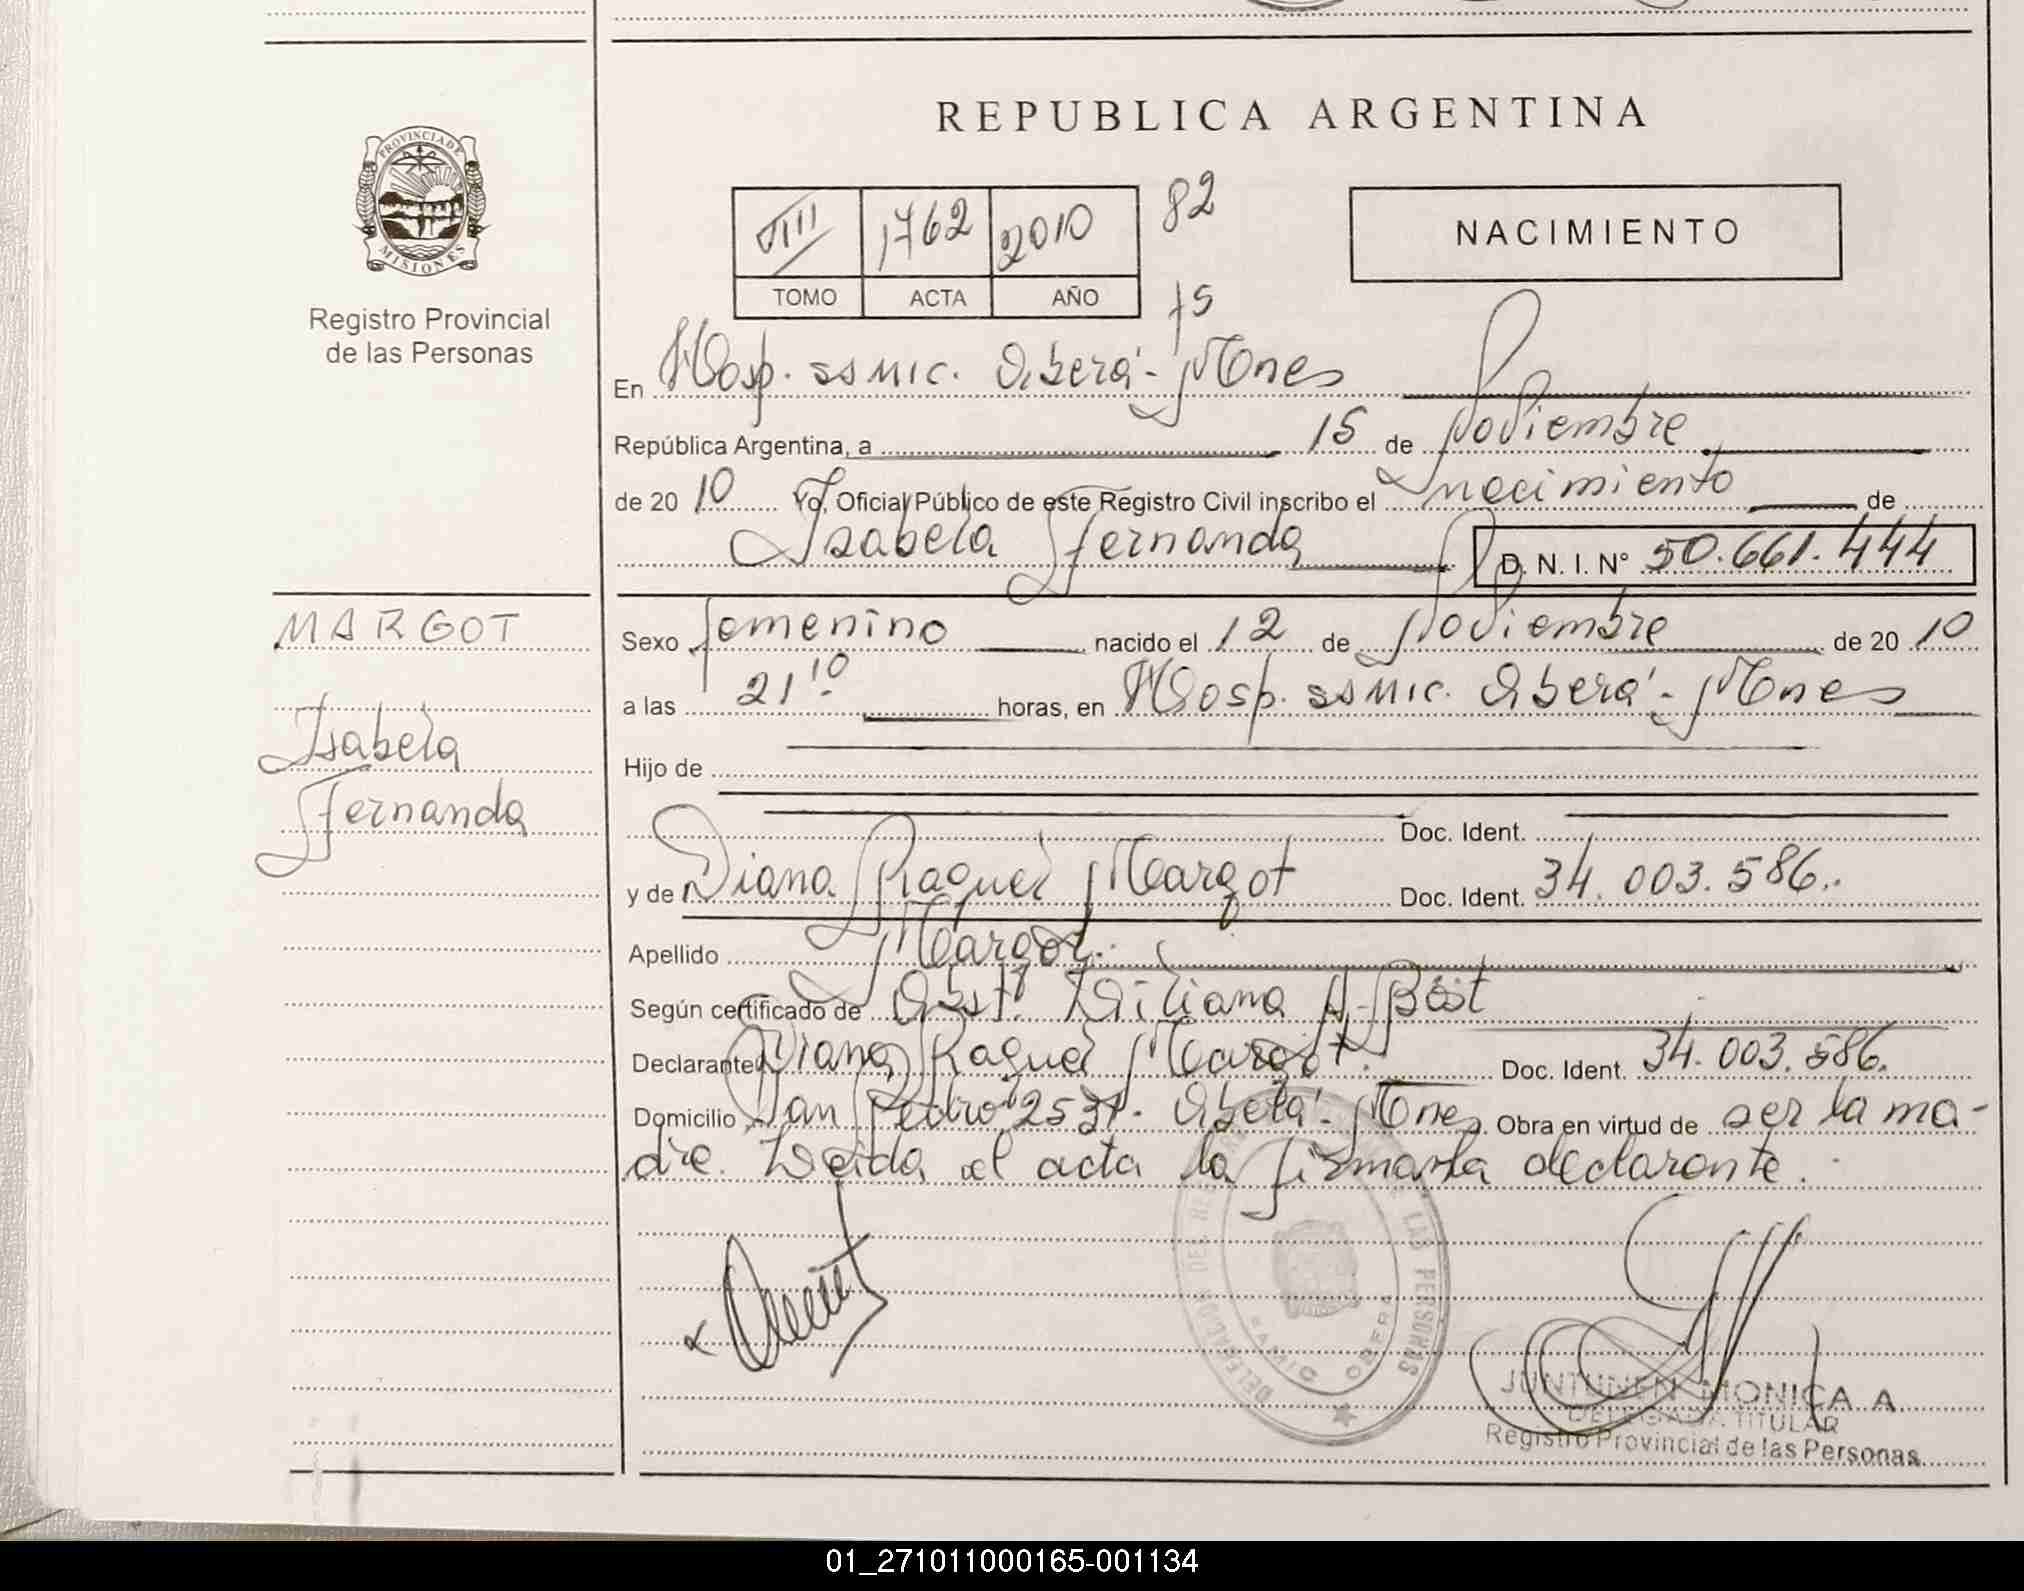 REPUBLICA ARGENTINA
PROVINCIA DE
MISIONES
Registro Provincial
de las Personas
VIII 1762 2010 82
TOMO ACTA AÑO 75
NACIMIENTO
En Hosp. SSMIC. Oberá - Mnes
República Argentina, a 15 de Noviembre
de 20 10 Yo, Oficial Público de este Registro Civil inscribo el nacimiento de
Isabela Fernanda D. N. I. N° 50.661.444
MARGOT
Isabela
Fernanda
Sexo femenino nacido el 12 de Noviembre de 20 10
a las 21 10 horas, en Hosp. SSMIC. Oberá - Mnes
Hijo de
Doc. Ident.
y de Diana Raquel Margot Doc. Ident. 34.003.586.
Apellido Margot.
Según certificado de Obst. Liliana A.
Declarante Diana Raquel Margot. Doc. Ident. 34.003.586.
Domicilio San Pedro 2537 - Oberá - Mnes Obra en virtud de ser la ma-
dre. Leida el acta la firma la declarante.
DELEGACION DEL REGISTRO LAS PERSONAS
OBERA
JUNTUNEN MONICA A
DELEGADA TITULAR
Registro Provincial de las Personas
01_271011000165-001134